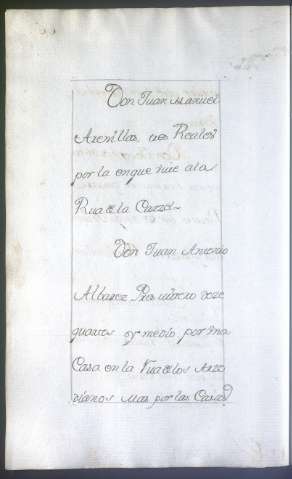 Don Juan Manuel
Arenillas tres Reales
por la en que vive a la
Rua de la Carzel
Don Juan Antonio
Albarez
quartos y medio por una
Casa en la Rua de los
mas por las Casas